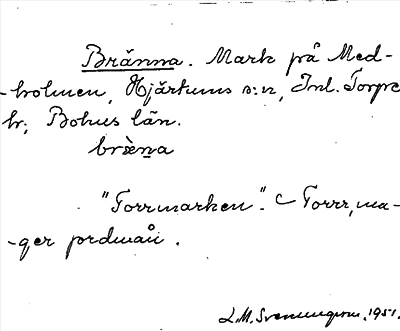 Bränna. Mark på Med-
-holmen, Hjärtums s:n, Inl. Torpe
hr, Bohus län.
bræ̀na
"Torrmarken". Torrr, ma-
-ger jordmån.
1951.